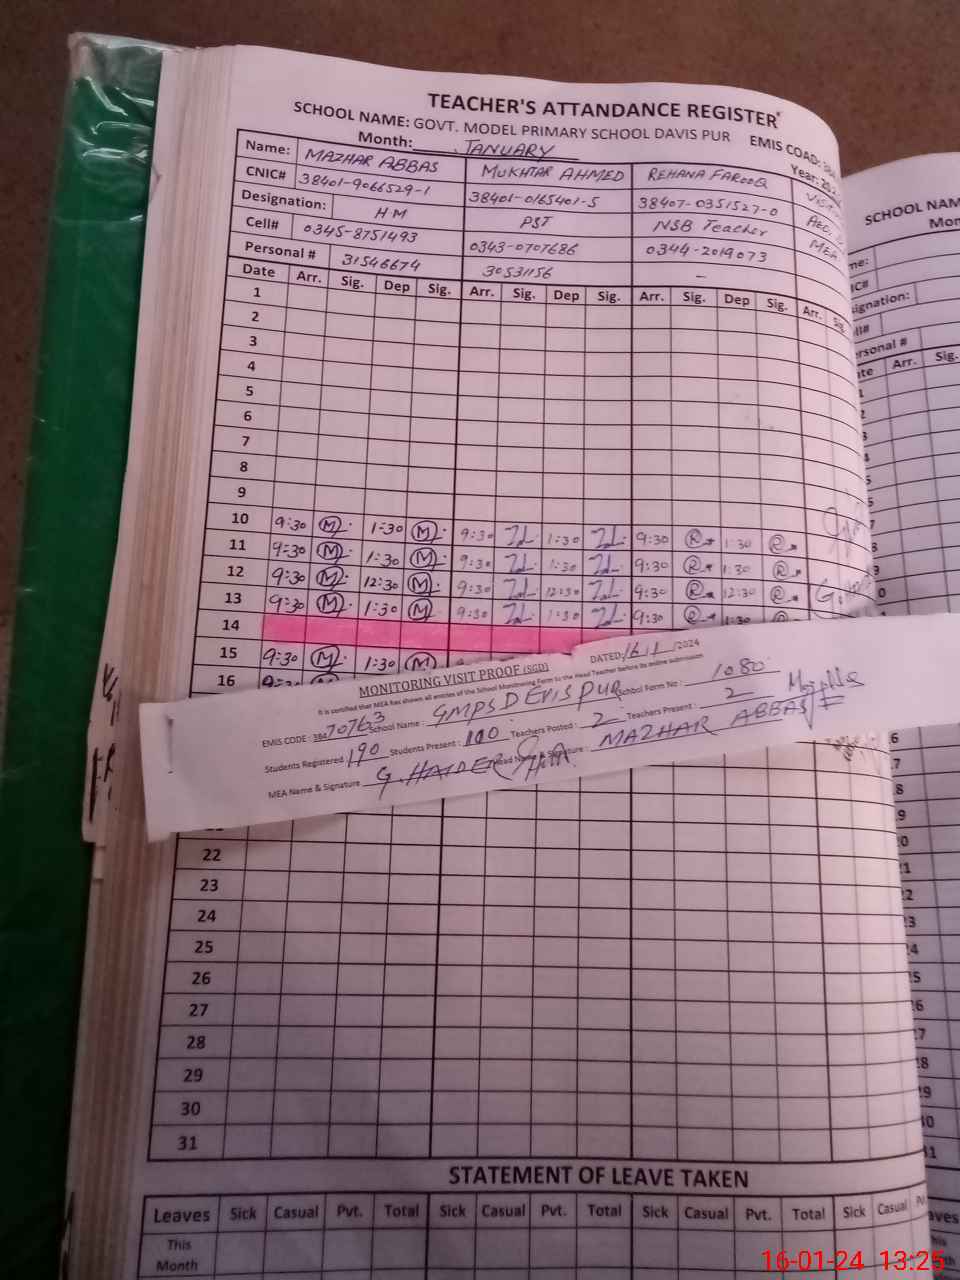 TEACHER'S ATTANDANCE REGISTER
SCHOOL NAME: GOVT. MODEL PRIMARY SCHOOL DAVIS PUR EMIS COAD: 384
Month: JANUARY Year: 20
Name: MAZHAR ABBAS MUKHTAR AHMED REHANA FAROOQ
CNIC# 38401-9066529-1 38401-0165401-5 38407-0351527-0
Designation: HM PST NSB Teacher
Cell# 0345-8751493 0343-0707686 0344-2019073
Personal # 31546674 30531156 –
Date Arr. Sig. Dep Sig. Arr. Sig. Dep Sig. Arr. Sig. Dep Sig. Arr. Sig.
1
2
3
4
5
6
7
8
9
10 9:30 M 1:30 M 9:30 1:30 9:30 R 1:30 R
11 9:30 M 1:30 M 9:30 1:30 9:30 R 1:30 R
12 9:30 M 12:30 M 9:30 12:30 9:30 R 12:30 R
13 9:30 M 1:30 M 9:30 1:30 9:30 R 1:30
14
15 9:30 M 1:30 M
16
MONITORING VISIT PROOF (SGD) DATED: 16/1/2024
It is certified that MEA has shown all entries of the School Monitoring Form to the Head Teacher before its online submission
EMIS CODE : 38470763 School Name : GMPS DEVIS PUR School Form No : 1080
Students Registered : 190 Students Present : 100 Teachers Posted : 2 Teachers Present : 2
MEA Name & Signature G. HAIDER Head Name & Signature : MAZHAR ABBAS
22
23
24
25
26
27
28
29
30
31
STATEMENT OF LEAVE TAKEN
Leaves Sick Casual Pvt. Total Sick Casual Pvt. Total Sick Casual Pvt. Total Sick Casual
This Month
SCHOOL NAM
Mon
signation:
ersonal #
Arr. Sig.
16-01-24 13:25